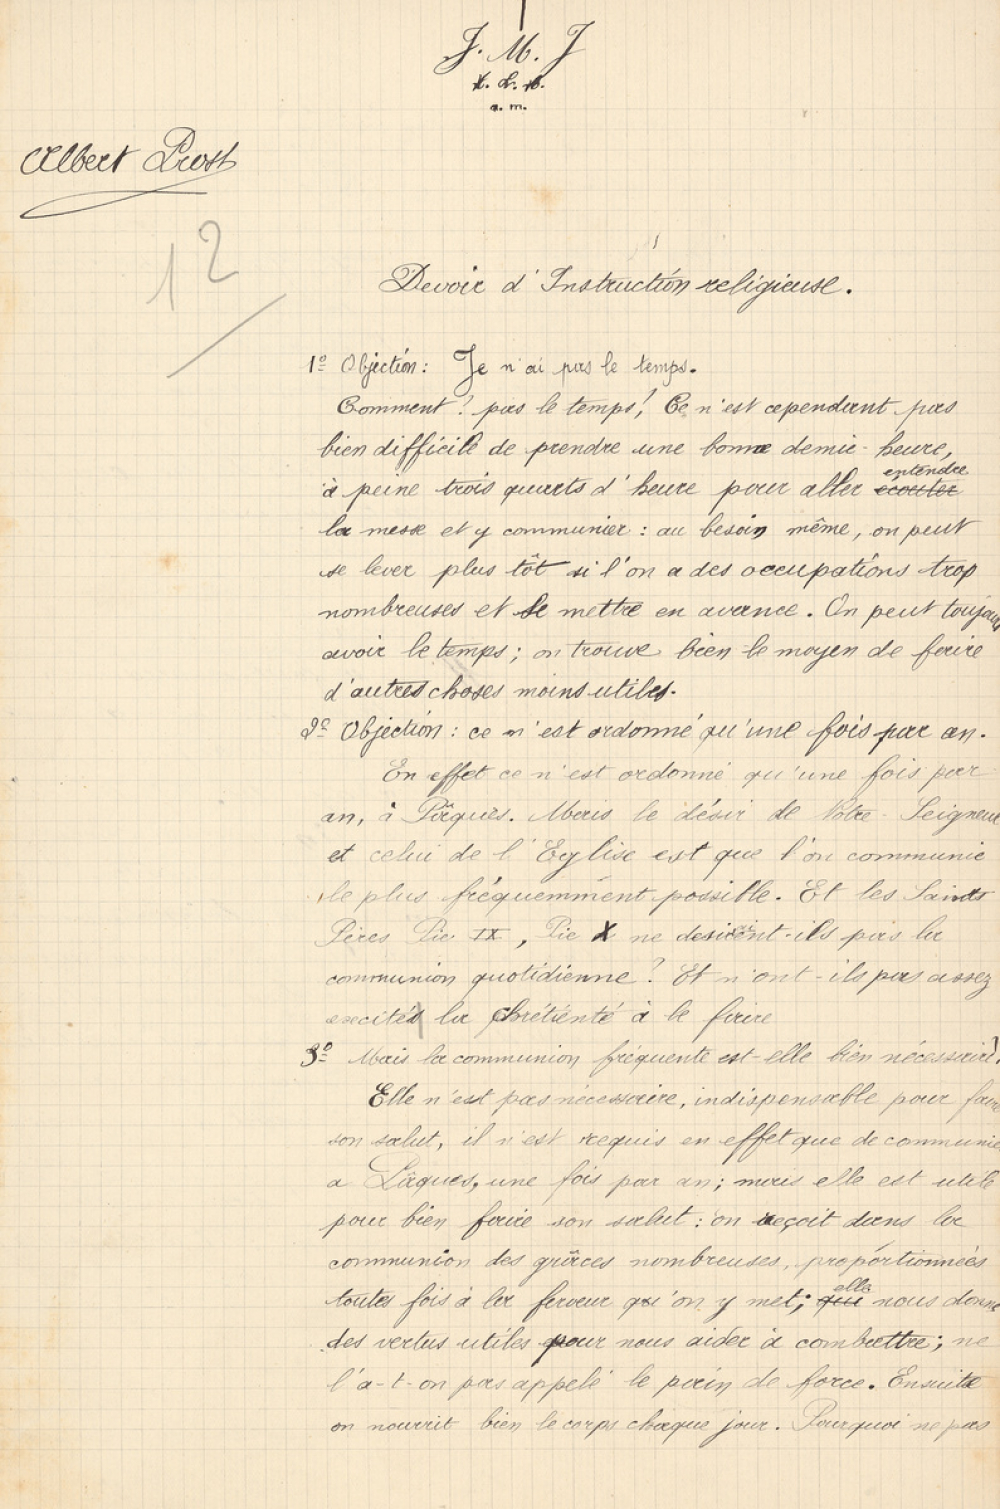 J. M. J
a. m.
Albert Prost
12
Devoir d'Instruction religieuse.
1º Objection : Je n'ai pas le temps.
Comment ! pas le temps ! Ce n'est cependant pas
bien difficile de prendre une bonne demie-heure,
entendre
à peine trois quarts d'heure pour aller écouter
la messe et y communier : au besoin même, on peut
se lever plus tôt si l'on a des occupations trop
nombreuses et se mettre en avance. On peut toujours
avoir le temps ; on trouve bien le moyen de faire
d'autres choses moins utiles.
2º Objection : ce n'est ordonné qu'une fois par an.
En effet ce n'est ordonné qu'une fois par
an, à Pâques. Mais le désir de Notre-Seigneur
et celui de l'Eglise est que l'on communie
le plus fréquemment possible. Et les Saints
Pères Pie IX, Pie X ne desiraient-ils pas la
communion quotidienne ? Et n'ont-ils pas assez
excités la chrétienté à le faire
3º Mais la communion fréquente est-elle bien nécessaire ?
Elle n'est pas nécessaire, indispensable pour faire
son salut, il n'est requis en effet que de communier
a Pâques, une fois par an ; mais elle est utile
pour bien faire son salut : on reçoit dans la
communion des grâces nombreuses, proportionnées
elle
toutes fois à la ferveur qu'on y met ; qui nous donne
des vertus utiles pour nous aider à combattre ; ne
l'a-t-on pas appelé le pain de force. Ensuite
on nourrit bien le corps chaque jour. Pourquoi ne pas